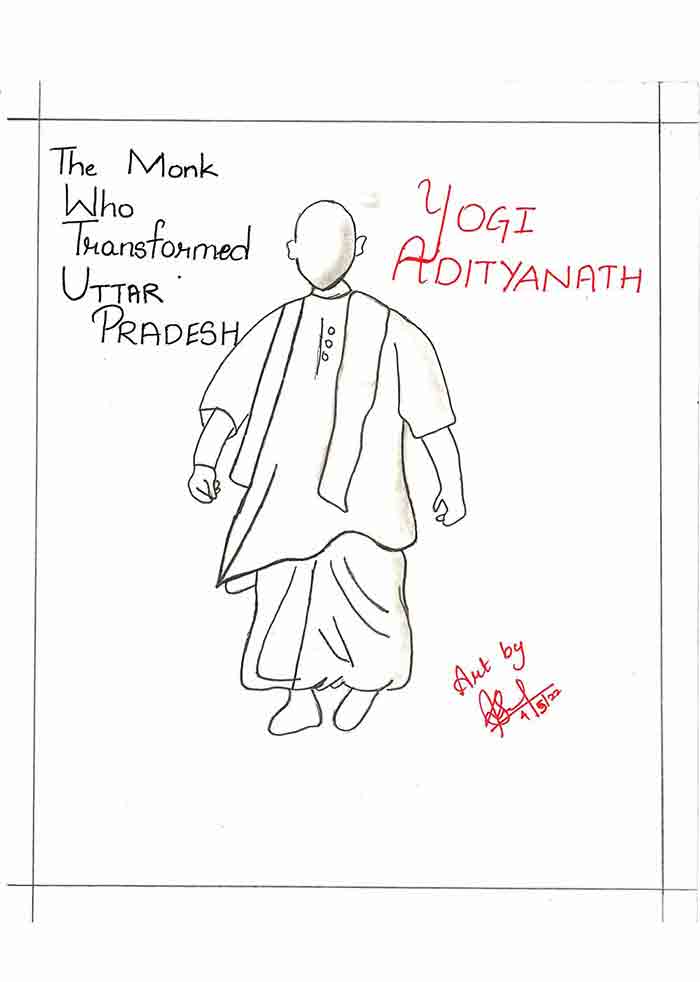 The Monk
Who
Transformed
UTTAR
PRADESH
YOGI
ADITYANATH
Art by
4/5/22